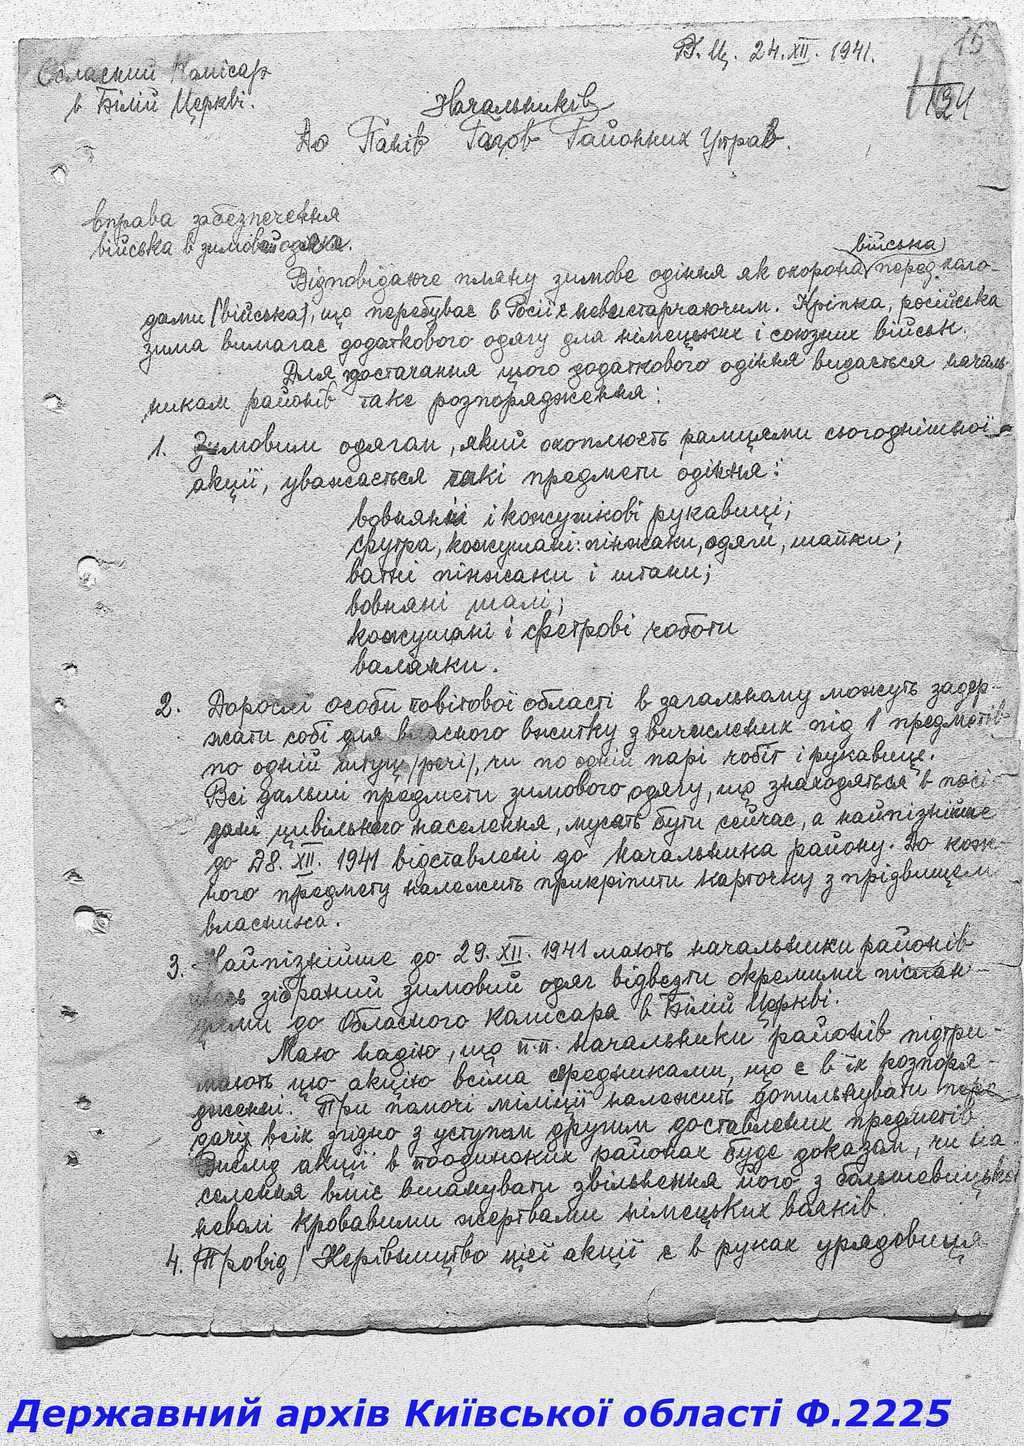 Б.Ц. 24.XII. 1941.
15
Обласний Комісар
в Білій Церкві.
Начальників
До Панів Голов Районних Управ.
вправа забезпечення
війська в зимовий одяг.
війська
Відповідаюче пляну зимове одіння як охорона перед холо-
дами /війська/, що перебуває в Росії є невистарчаючим. Кріпка, російська
зима вимагає додаткового одягу для німецьких і союзних військ.
Для достачання цього додаткового одіння видається началь-
никам районів таке розпорядження:
1. Зимовим одягам, який охоплюєть рамцями сьогоднішної
акції, уважається такі предмети одіння:
вовняні і кожушкові рукавиці;
футра, кожушані: пінжаки, одяги, шапки;
ватні пінжаки і штани;
вовняні шалі;
кожушані і фетрові чоботи
валянки.
2. Дорослі особи повітової області в загальному можуть задер-
жати собі для власного вжитку з вичислених під 1 предметів
по одній штуці /речі/, чи по одній парі чобіт і рукавиць.
Всі дальші предмети зимового одягу, що знаходяться в посі-
данні цивільного населення, мусять бути сейчас, а найпізніше
до 28. XII. 1941 відставлені до Начальника району. До кож-
ного предмету належить прикріпити карточку з прізвищем
власника.
3. Найпізнійше до 29. XII. 1941 мають начальники районів
зібраний зимовий одяг відвезти окремими післан-
цями до Обласного Комісара в Білій Церкві.
Маю надію, що п.п. Начальники районів підтри-
мають цю акцію всіма средниками, що є в їх розпоря-
дженні. При помочі міліції належить допильнувати пере-
дачі всіх згідно з уступом другим доставлених предметів
Вислід акції в поодиноких районах буде доказом, чи на-
селення вміє вшанувати звільнення його з большевицької
неволі кровавими жертвами німецьких вояків.
4. /Провід/ Керівництво цієї акції є в руках урядовиця
Державний архів Київської області Ф.2225